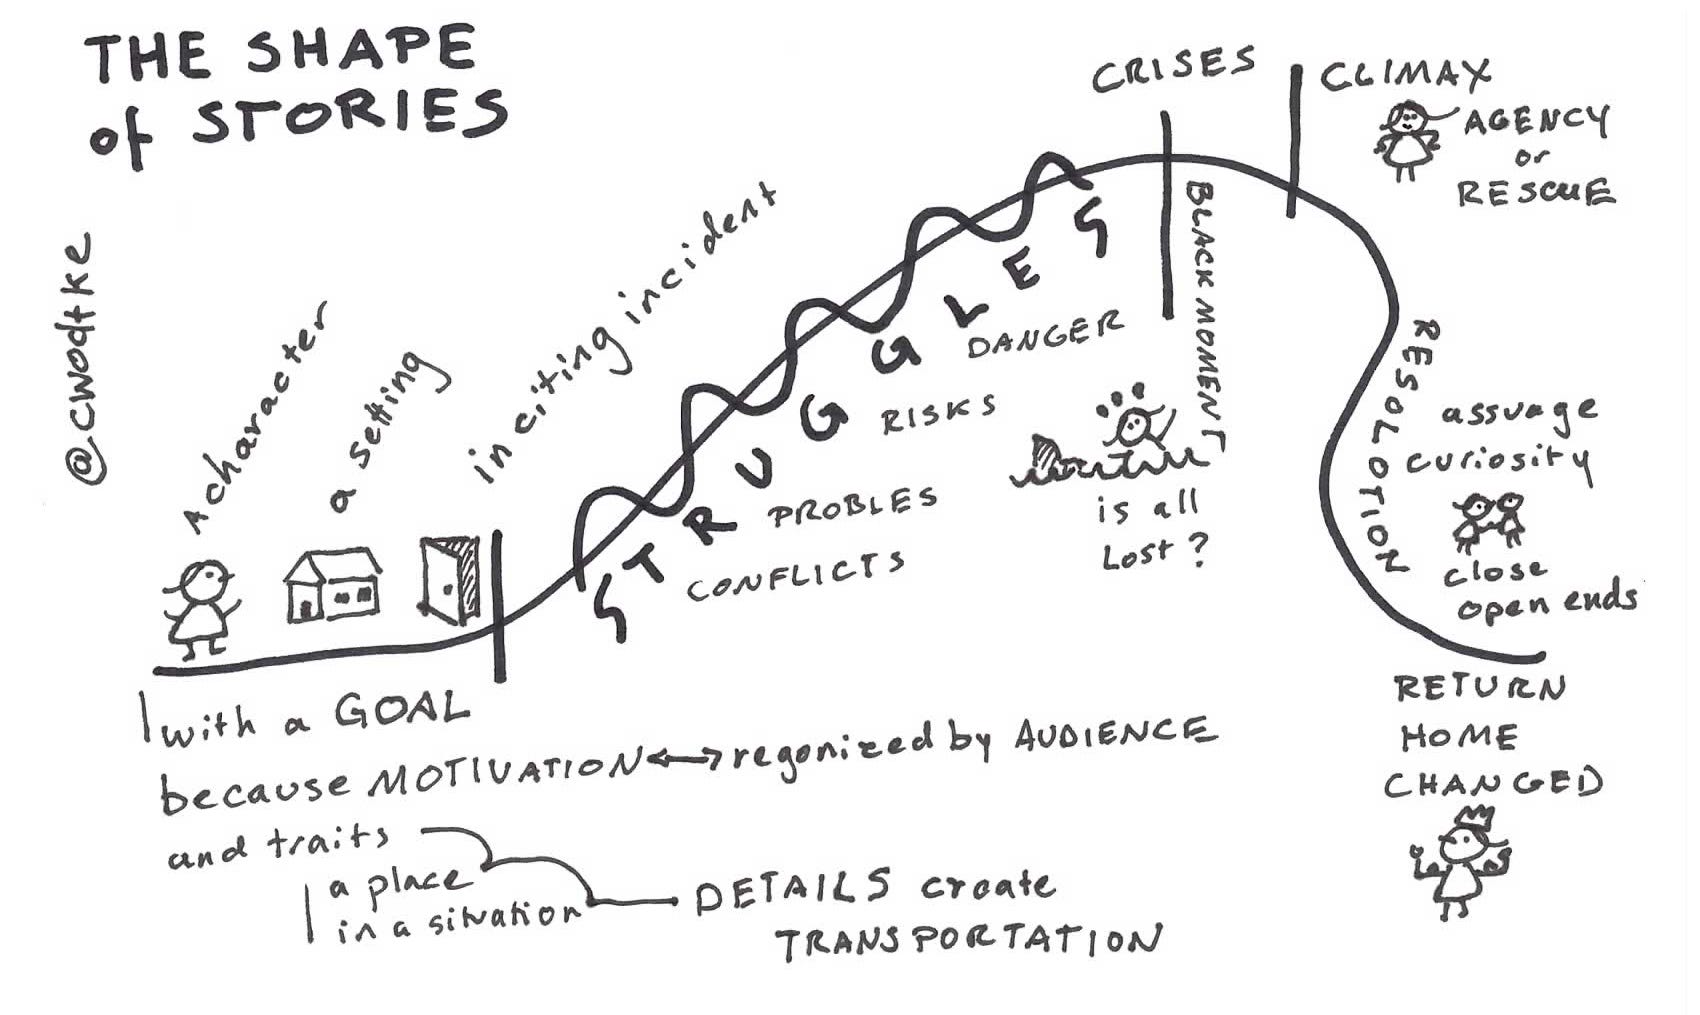 THE SHAPE
of STORIES
@cwodtke
A character
a setting
inciting incident
STRUGGLES
CONFLICTS
PROBLES
RISKS
DANGER
CRISES
BLACK MOMENT
is all
Lost?
CLIMAX
AGENCY
or
RESCUE
RESOLOTION
assuage
curiosity
close
open ends
RETURN
HOME
CHANGED
with a GOAL
because MOTIVATION ↔ regonized by AUDIENCE
and traits
a place
in a situation
DETAILS create
TRANSPORTATION